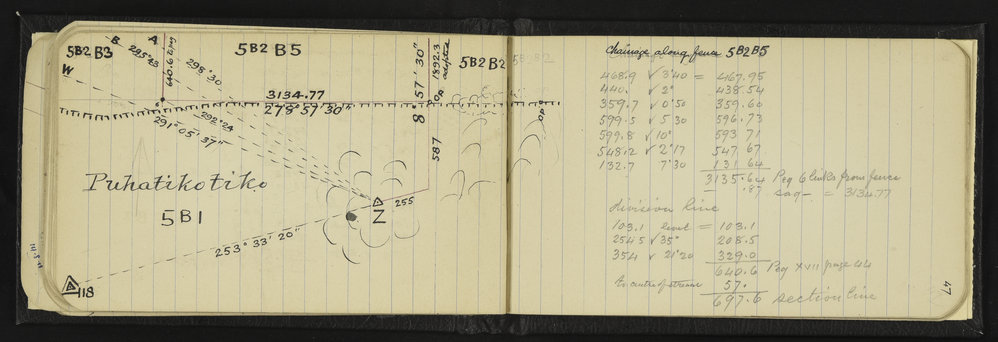 5B2 B3
B
A
W
295° 43'
640.6 to peg
295° 30
5B2 B5
3134.77
278° 57' 30"
291° 05' 37"
292° 24
8° 57' 30"
1892.3 adopted
OP
5B2 B2
587
Puhatikotiko
5B1
Z
255
253° 33' 20"
118
OP
Chainage along fence 5B2B5
468.9 √ 3°40 = 467.95
440. √ 2° 438.54
359.7 √ 0°50 359.60
599.5 √ 5 30 596.73
599.8 √ 10° 593 71
548.2 √ 2°17 547 67
132.7 7°30 131 64
3135.64 Peg 6 links from fence
.87 sag - = 3134.77
division line
103.1 level = 103.1
254 5 √ 35° 208.5
354 √ 21°20 329.0
640.6 Peg XVII page 44
to centre of stream 57.
697.6 section line
47